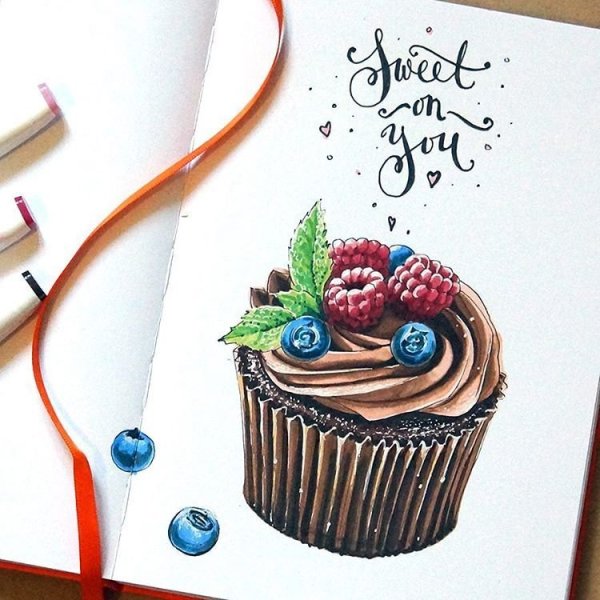 Sweet
on
You